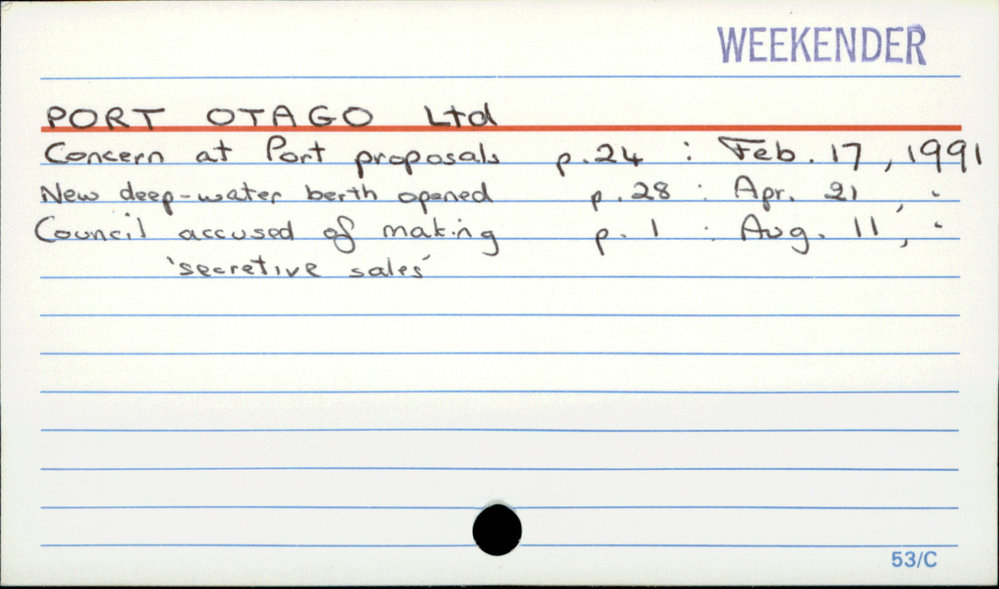 WEEKENDER
PORT OTAGO Ltd
Concern at Port proposals p.24 : Feb. 17, 1991
New deep-water berth opened p.28 : Apr. 21, "
Council accused of making p. 1 : Aug. 11, "
'secretive sales'
53/C